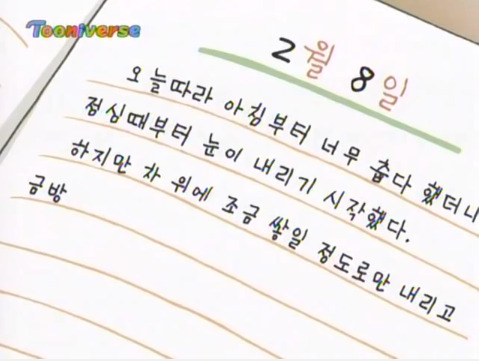 Tooniverse
2월 8일
오늘따라 아침부터 너무 춥다 했더니
점심때부터 눈이 내리기 시작했다.
하지만 차 위에 조금 쌓일 정도로만 내리고
금방